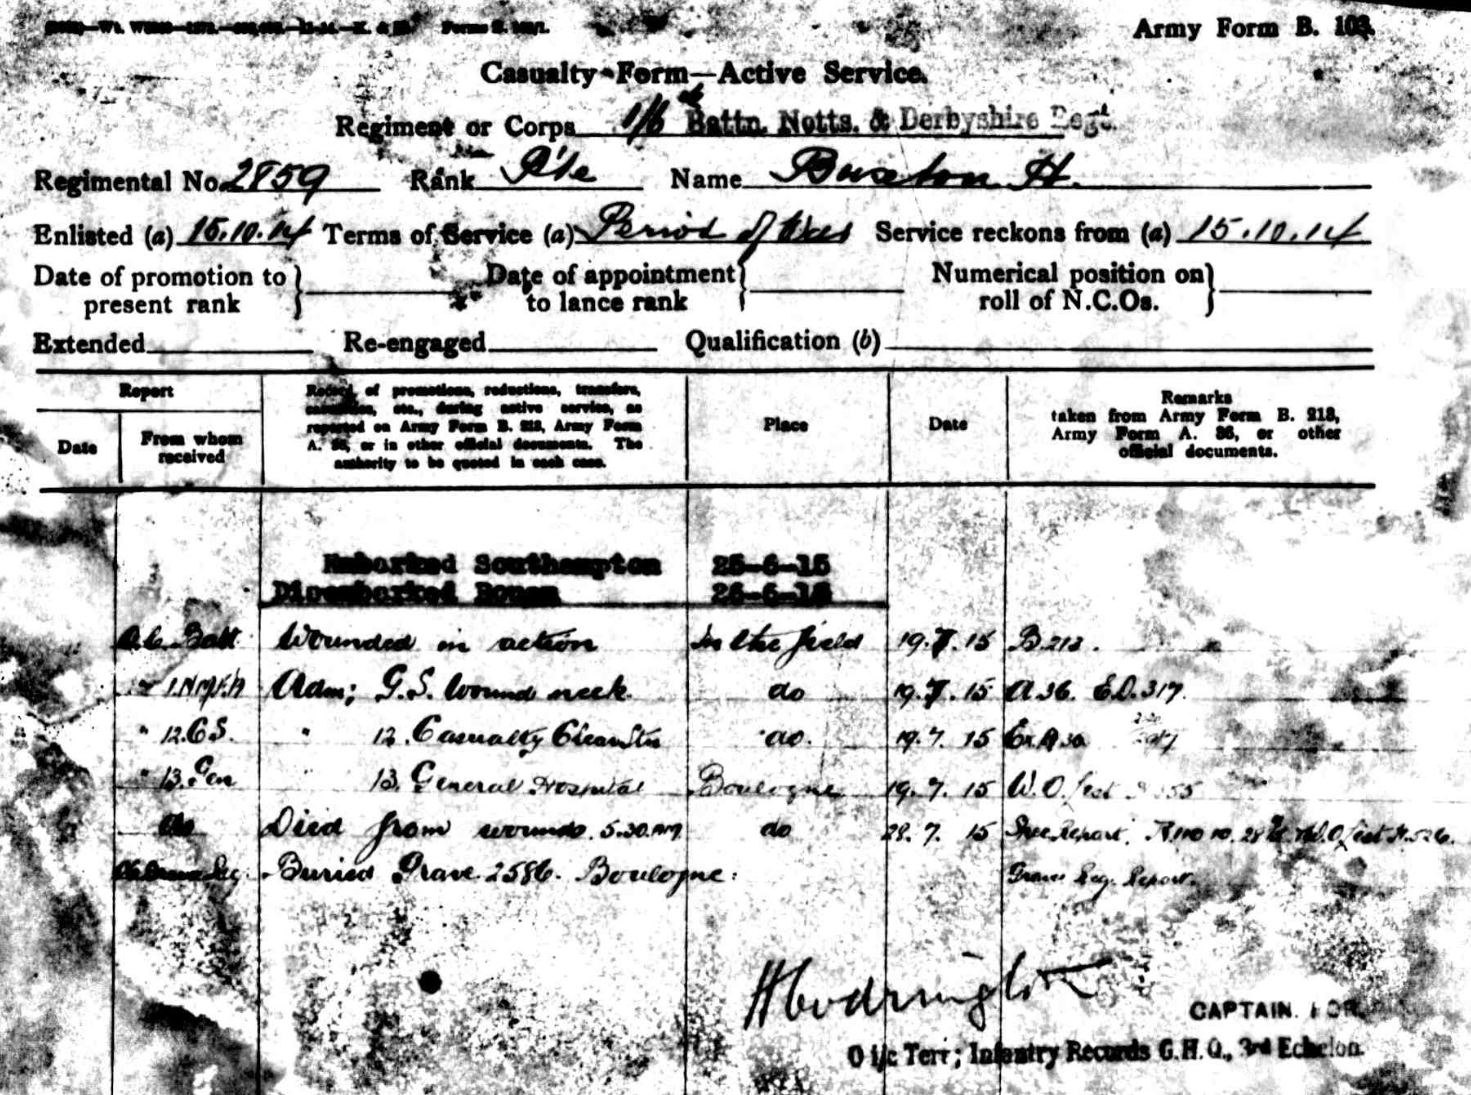 Army Form B. 103.
Casualty Form—Active Service.
Regiment or Corps 1/6th Battn. Notts. & Derbyshire Regt.
Regimental No. 2859 Rank P'te Name Buxton H.
Enlisted (a) 15.10.14 Terms of Service (a) Period of War Service reckons from (a) 15.10.14
Date of promotion to present rank } Date of appointment to lance rank } Numerical position on roll of N.C.Os. }
Extended Re-engaged Qualification (b)
Report
Date
From whom received
Record of promotions, reductions, transfers,
casualties, etc., during active service, as
reported on Army Form B. 213, Army Form
A. 36, or in other official documents. The
authority to be quoted in each case.
Place
Date
Remarks
taken from Army Form B. 213,
Army Form A. 36, or other
official documents.
Embarked Southampton 25-6-15
Disembarked Rouen 26-6-15
O.C. Batt Wounded in action In the field 19.7.15 B213.
Adm; G.S. Wound neck. do 19.7.15 A36. E.D.317.
" 12 C.S. " 12. Casualty Clear Stn do. 19.7.15
" 13. Gen 13. General Hospital Boulogne 19.7.15 W.O. list
do Died from wounds. 5.30 do 28.7.15 Report.
Buried Grave 2586. Boulogne. Graves Reg. Report.
H Codrington
CAPTAIN. FOR
O i/c Terr; Infantry Records G.H.Q., 3rd Echelon